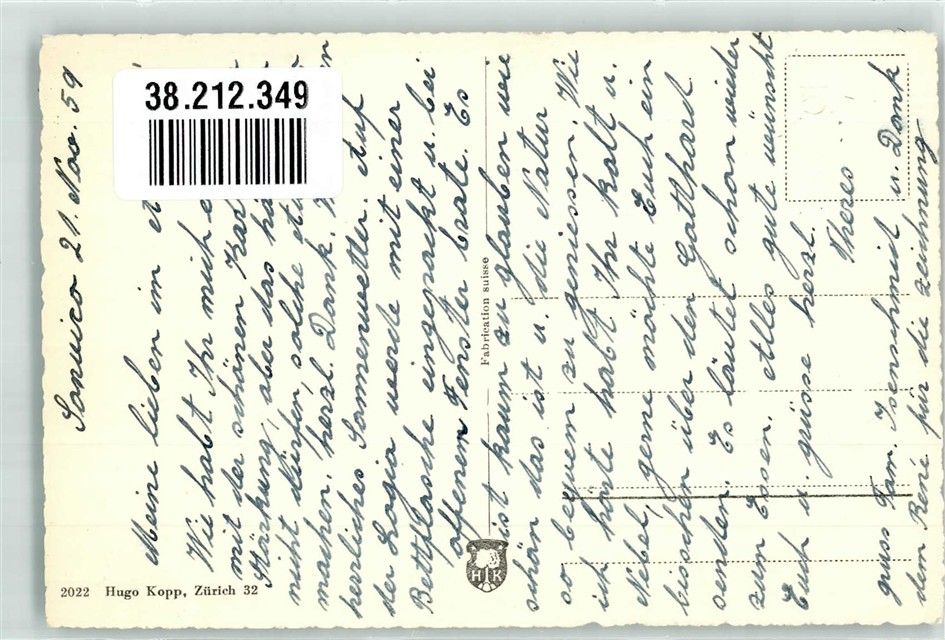 38.212.349
21. Nov. 59
Meine lieben im
Wie habt Ihr mich
mit der schönen
Stärkung, aber das
nicht dürfen, solche
machen. herzl. Dank.
herrliches Sonnenwetter. Auf
der Logia werde mit einer
Bettflasche eingepackt u. bei
offenem Fenster brate. Es
ist kaum zu glauben wie
schön das ist u. die Natur
so bequem zu geniessen. Wie
ich hörte habt Ihr kalt u.
Nebel, gerne möchte Euch ein
bisschen über den Gotthard
senden. Es läutet schon wieder
zum Essen. Alles gute wünscht
Euch u. grüsse herzl.
Theres
gruss Fam. Isenschmid u. Dank
dem René für die Zeichnung
Fabrication suisse
HK
2022 Hugo Kopp, Zürich 32